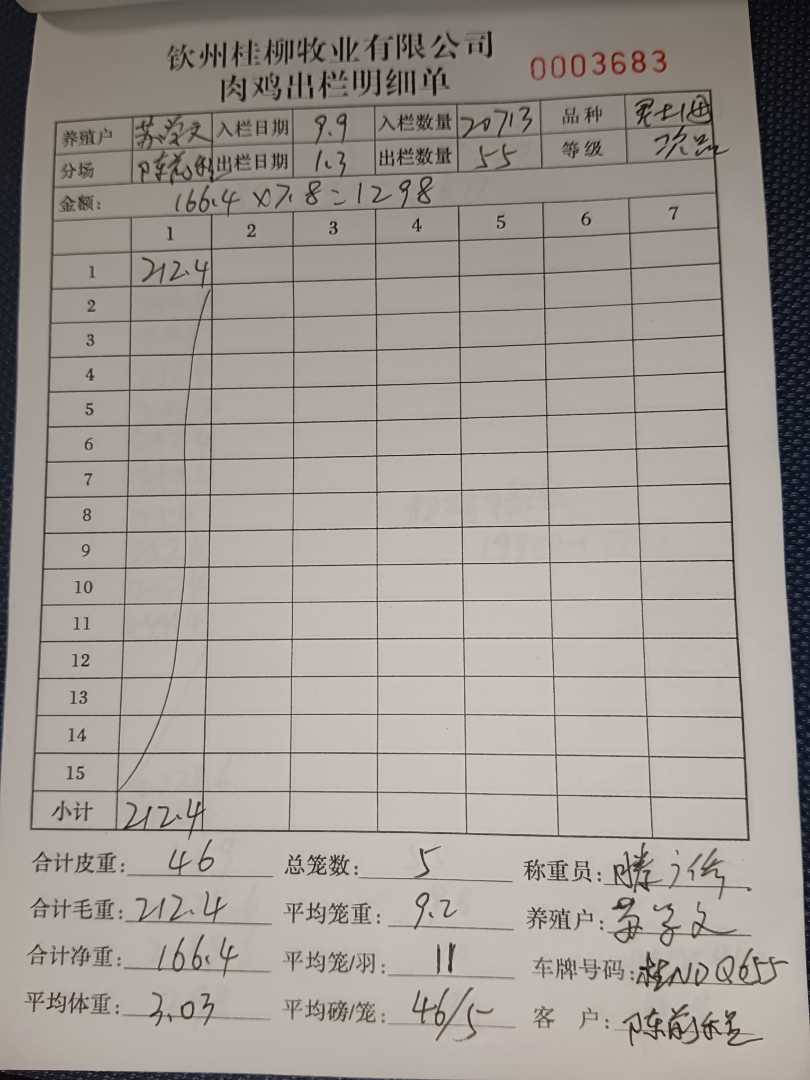 钦州桂柳牧业有限公司
肉鸡出栏明细单 0003683
养殖户 苏学文 入栏日期 9.9 入栏数量 20713 品种
分场 陈前程 出栏日期 1.3 出栏数量 55 等级 次品
金额: 166.4×7.8=1298
1 2 3 4 5 6 7
1 212.4
2
3
4
5
6
7
8
9
10
11
12
13
14
15
小计 212.4
合计皮重: 46 总笼数: 5 称重员:
合计毛重: 212.4 平均笼重: 9.2 养殖户: 苏学文
合计净重: 166.4 平均笼/羽: 11 车牌号码: 桂NDQ655
平均体重: 3.03 平均磅/笼: 46/5 客户: 陈前程